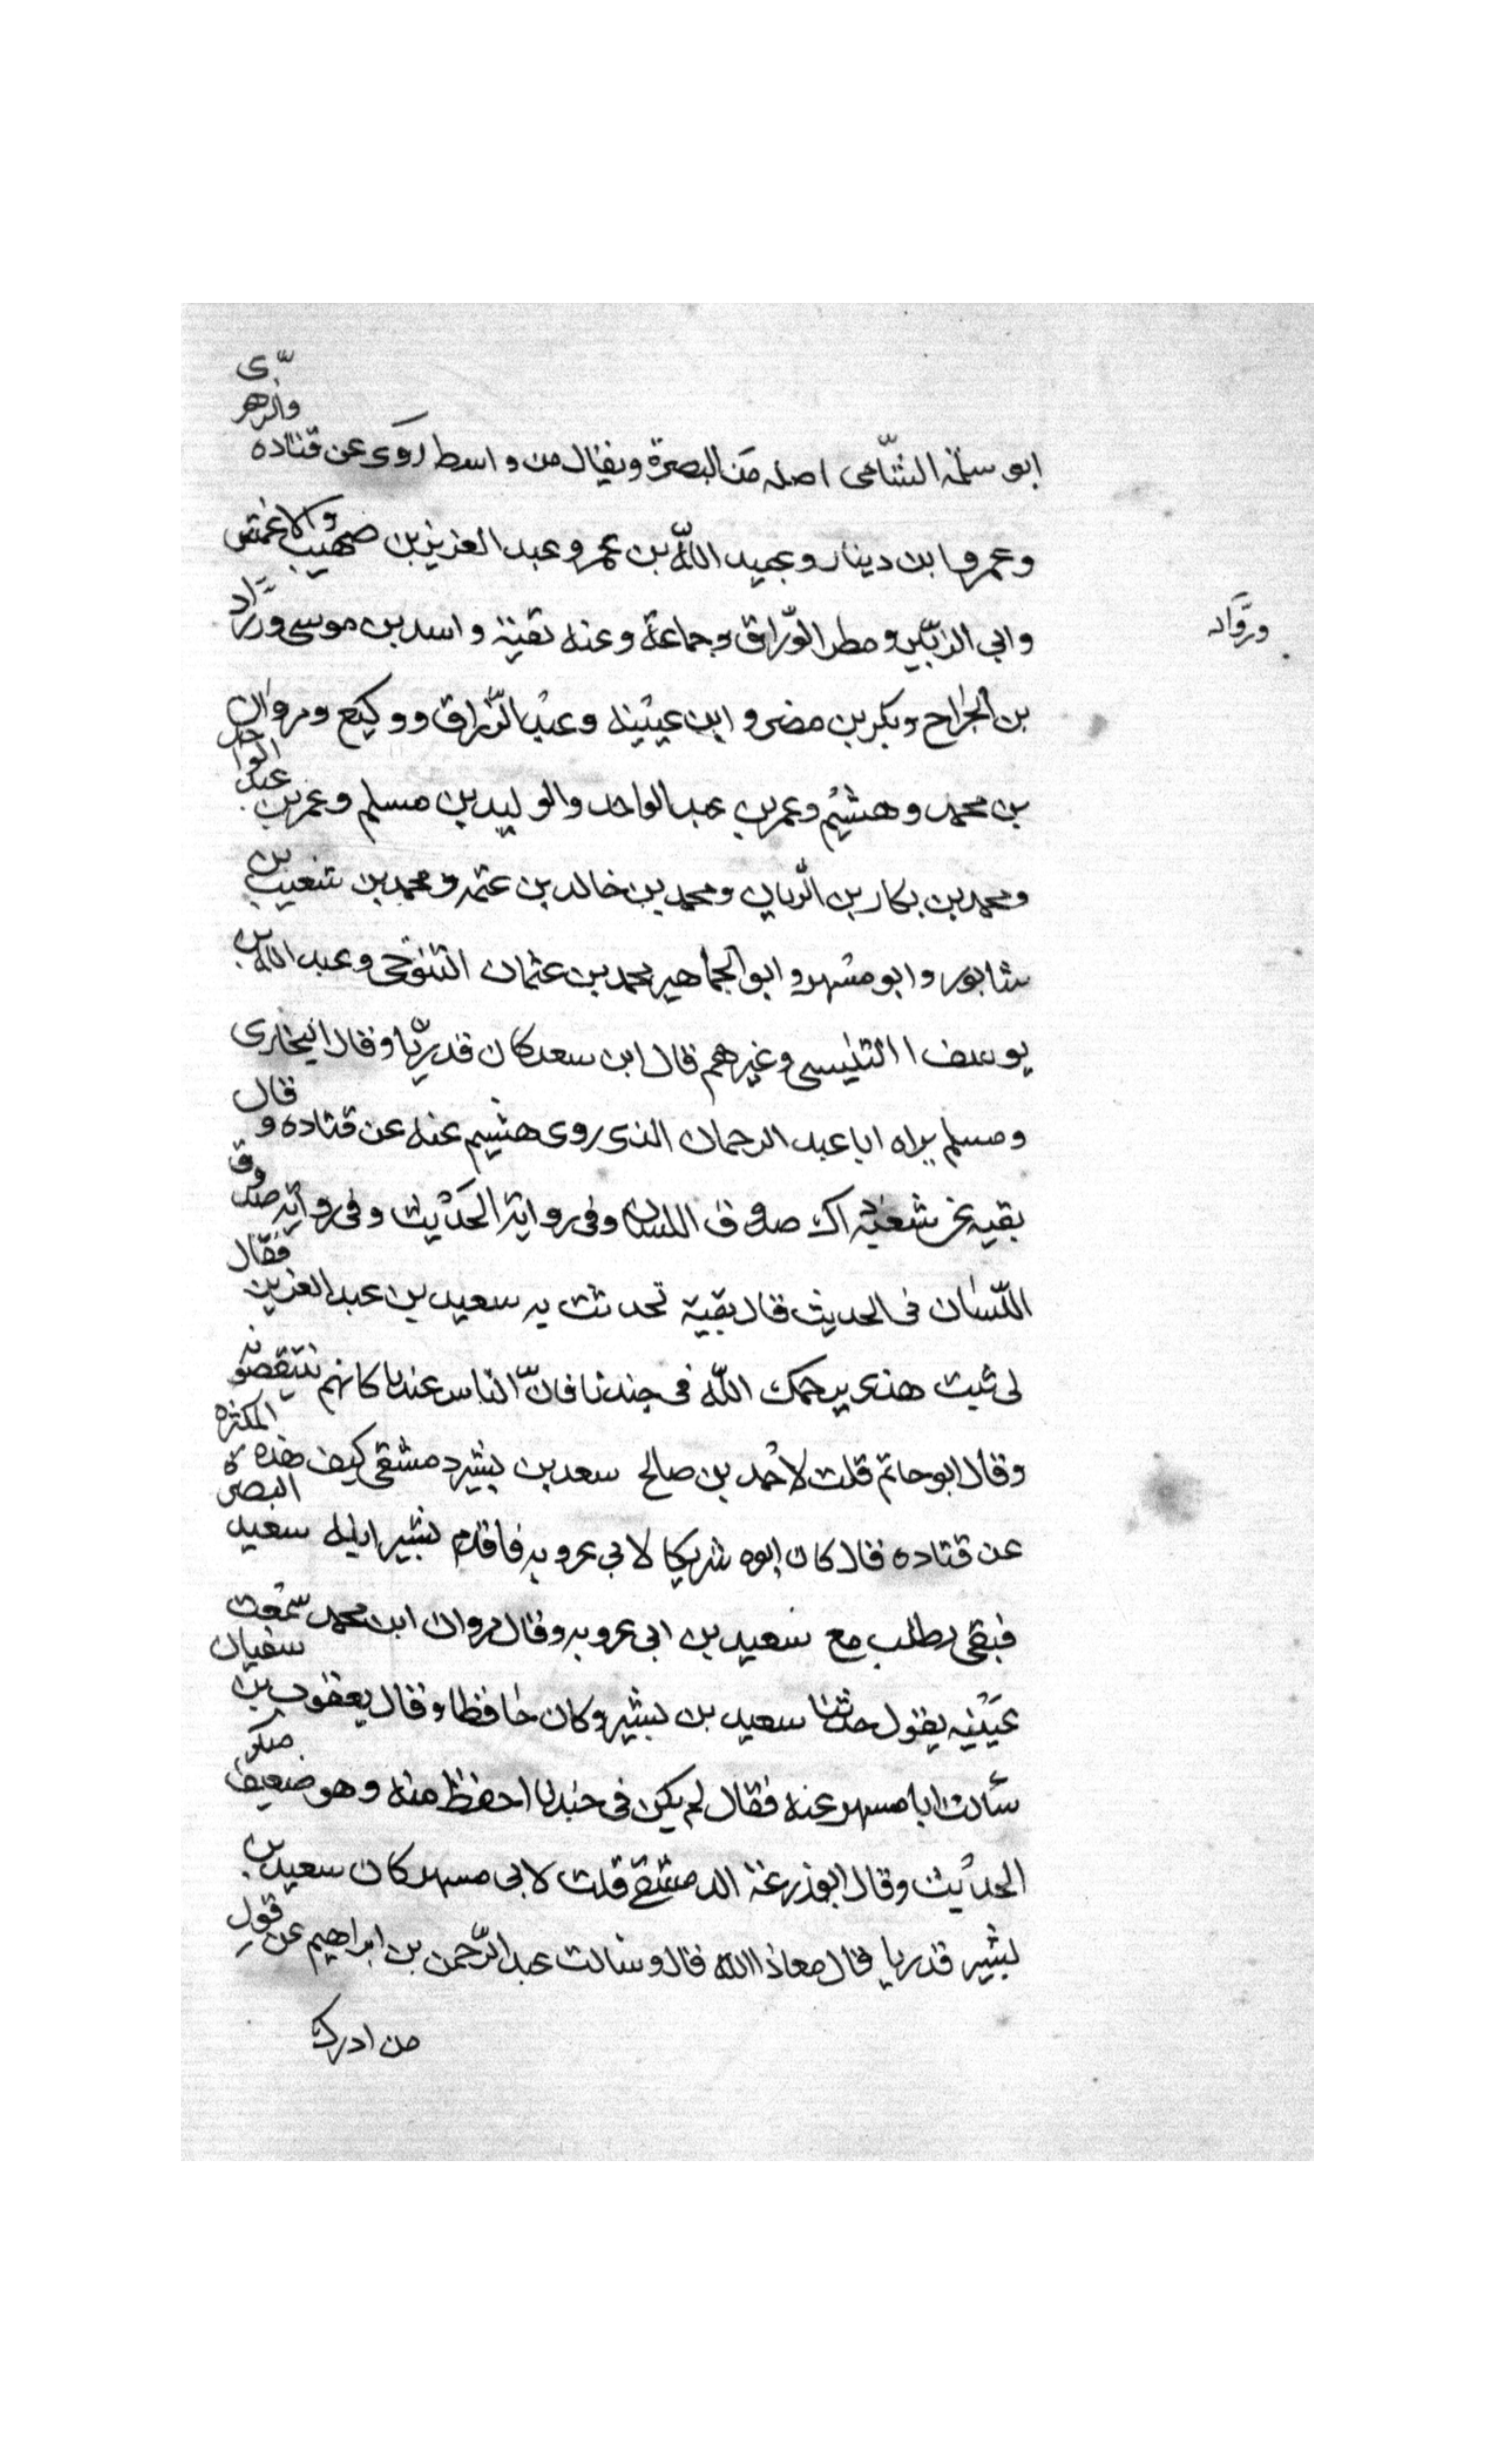 ابو سلمة الشامى اصله من البصرة ويقال من واسط روى عن قتاده والزهرى
وعمرو ابن دينار وعبيد الله بن عمر وعبد العزيز بن صهيب والاعمش
وابي الزبير ومطر الوّراق وجماعة وعنه بقية واسد بن موسى وروّاد
وروّاد
بن الجراح وبكر بن مضر وابن عيينه وعبد الرزاق ووكيع ومروان
بن محمد وهشيم وعمر بن عبد الواحد والوليد بن مسلم وعمر بن عبد الواحد
ومحمد بن بكار بن الريان ومحمد بن خالد بن عثمه ومحمد بن شعيب بن
شابور وابو مسهر وابو الجماهير محمد بن عثمان التنوخى وعبد الله بن
يوسف االتنيسى وغيرهم قال ابن سعد كان قدريّا وقال البخارى
ومسلم يراه ابا عبد الرحمان الذى روى هشيم عنه عن قتاده وقال
بقيه عن شعبه اك صدوق اللسان وفى رواية الحديث وفى رواية صدوق
اللّسان فى الحديث قال بقية تحدثت به سعيد بن عبد العزيز فقال
لى ثبت هذى يرحمك اللّه فى جندنا فانّ الناس عندنا كانهم ينتقصونه
وقال ابو حاتم قلت لاحمد بن صالح سعد بن بشير دمشقى كيف هذه الكثره
عن قتاده قال كان ابوه شريكا لابي عروبه فاقدم بشير ابنه سعيد البصرة
فبقى يطلب مع سعيد بن ابى عروبه وقال مروان ابن محمد سمعت سفيان
عيينه يقول حدثنا سعيد بن بشير وكان حافظا وقال يعقوب بن
سألت ابا مسهر عنه فقال لم يكن فى جندنا احفظ منه وهو ضعيف منكر
الحديث وقال ابو زرعة الدمشقى قلت لابى مسهر كان سعيد بن
بشير قدريا قال معاذ االله قال وسالت عبد الرّحمن بن ابراهيم عن قول
من ادرك